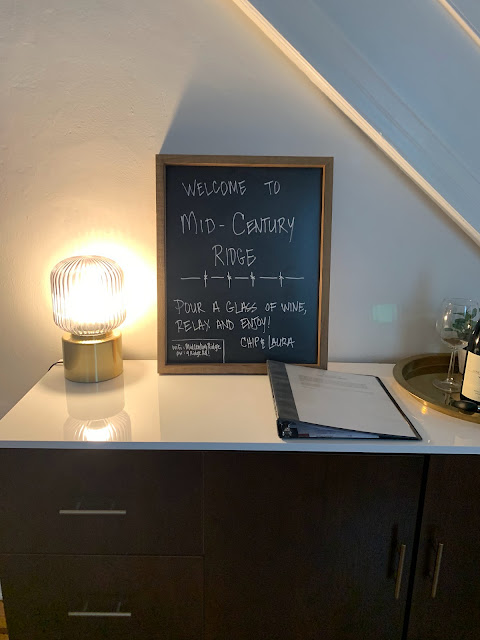 WELCOME TO
MID-CENTURY
RIDGE
POUR A GLASS OF WINE,
RELAX AND ENJOY!
CHIP & LAURA